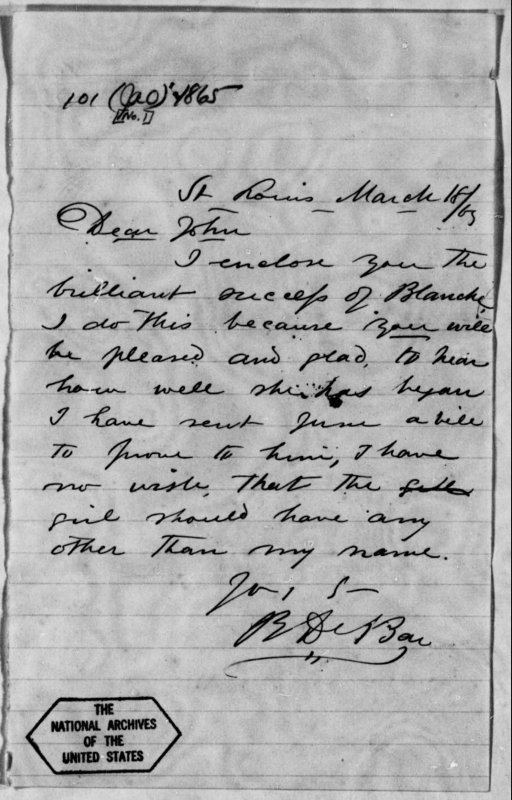 101 (JAO) 1865
[No. 1]
St Louis March 18/65
Dear John
I enclose you the
brilliant success of Blanche
I do this because you will
be pleased and glad, to hear
how well she has began
I have sent June a bill
to prove to him, I have
no wish, that the
girl should have any
other than my name.
B DeBar
THE
NATIONAL ARCHIVES
OF THE
UNITED STATES